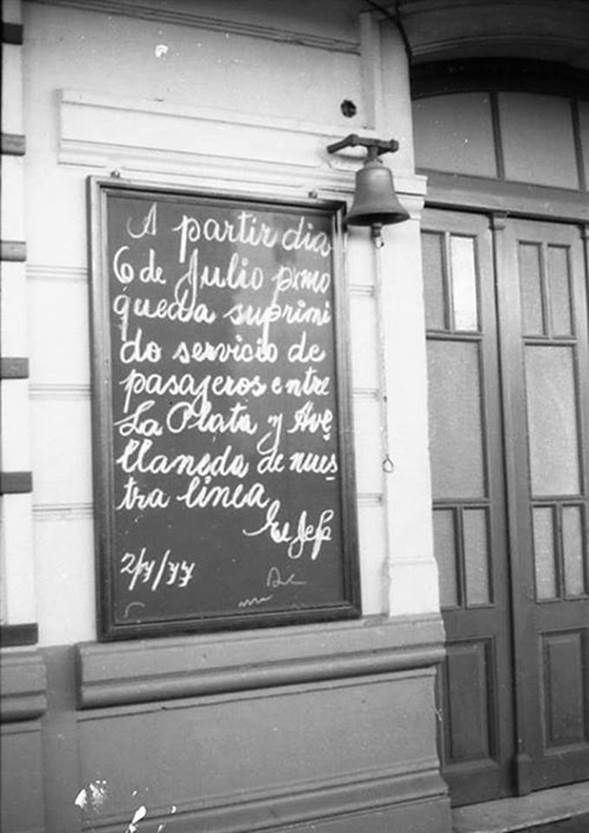 A partir dia
6 de Julio pxmo
queda suprimi
do servicio de
pasajeros entre
La Plata y Ave
llaneda de nues
tra linea
El Jefe
2/7/77